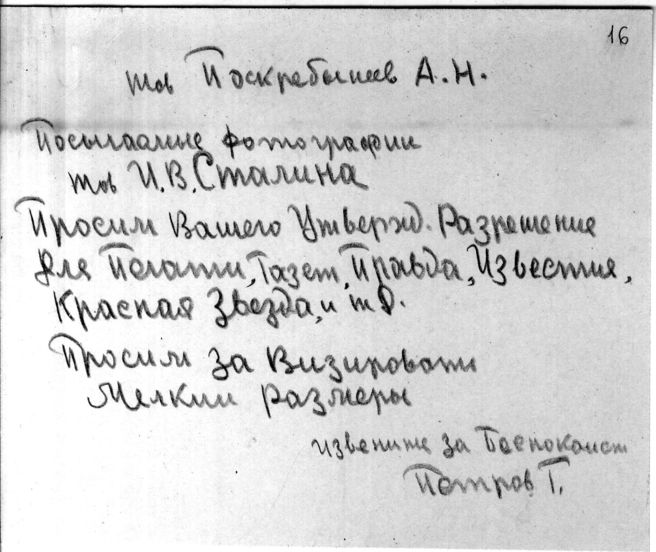 16
тов Поскребышев А.Н.
Посылаемые фотографии
тов И.В. Сталина
Просим Вашего Утвержд. Разрешение
для Печати, Газет, Правда, Известия,
Красная Звезда, и т.д.
Просим за Визировать
Мелкии размеры
извените за Беспокоист
Петров Г.